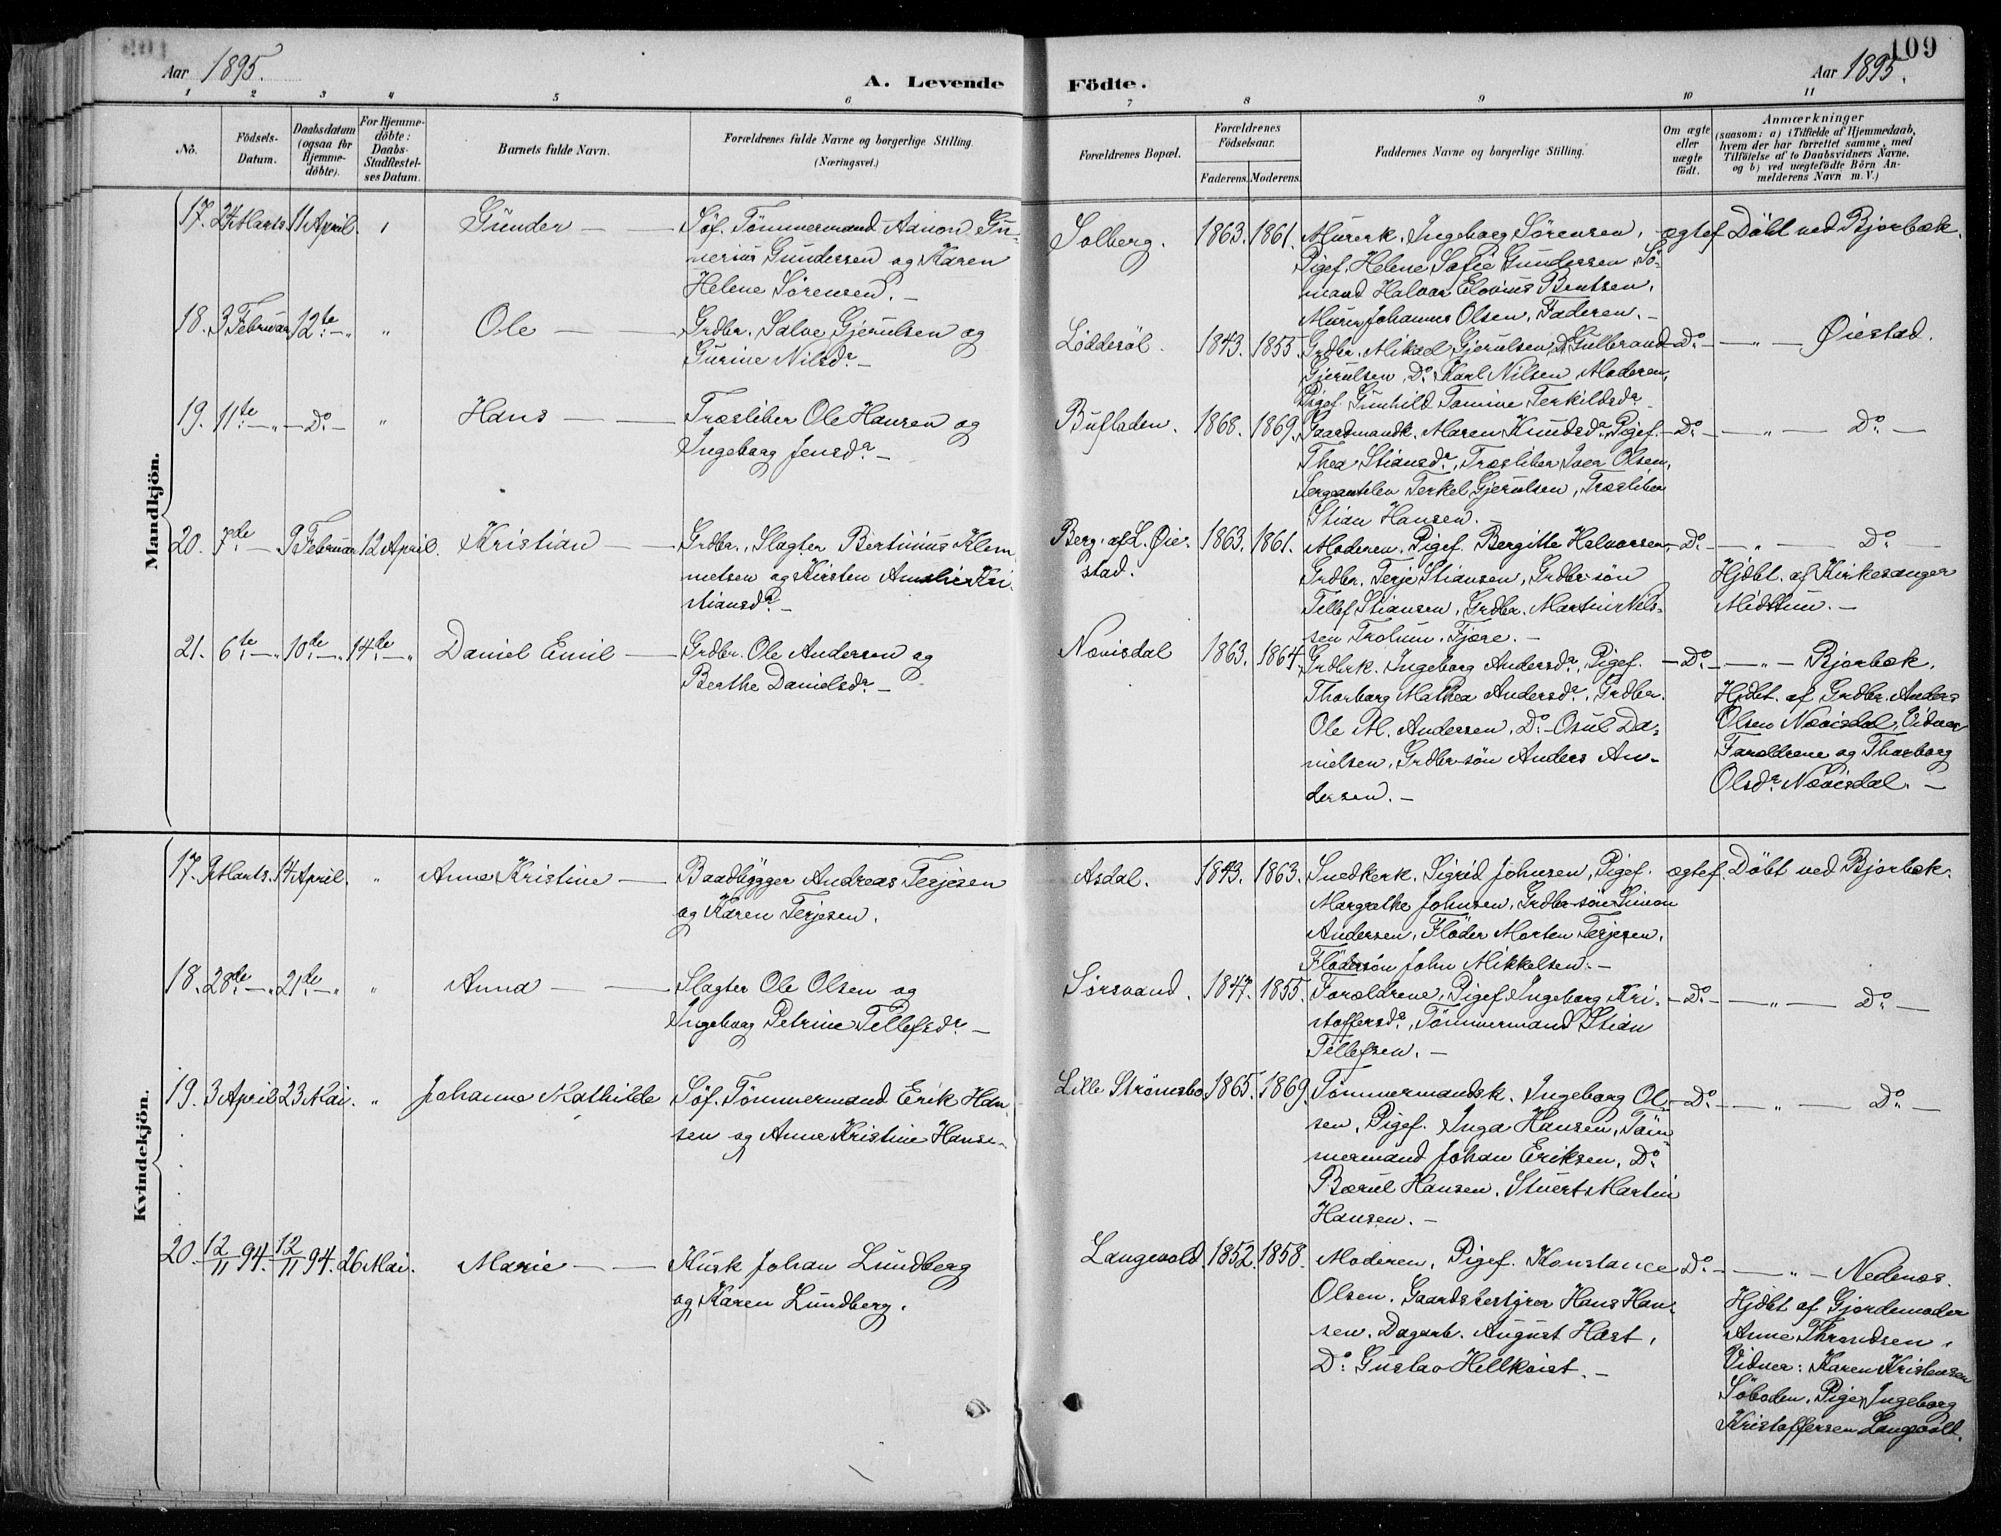 109
Aar 1895.
A. Levende Födte.
Aar 1895.
1 2 3 4 5 6 7 8 9 10 11
No.
Födsels-Datum.
Daabsdatum (ogsaa for Hjemme-döbte).
For Hjemme-döbte: Daabs-Stadfæstel-ses Datum.
Barnets fulde Navn.
Forældrenes fulde Navne og borgerlige Stilling.
(Næringsvei.)
Forældrenes Bopæl.
Forældrenes Födselsaar.
Faderens. Moderens.
Faddernes Navne og borgerlige Stilling.
Om ægte eller uægte födt.
Anmærkninger
(saasom: a) i Tilfælde af Hjemmedaab, hvem der har forrettet samme, med Tilföielse af to Daabsvidners Navne, og b) ved uægtefödte Börn An-melderens Navn m. V.)
Mandkjön.
17. 24 Marts. 11 April. " Gunder — Søf. Tömmermand Aanon Gu-
nerius Gundersen og Karen
Helene Sørensen. —
Solberg. 1863. 1861. Murerk. Ingeborg Sörensen,
Pigef. Helene Sofie Gundersen, Sö-
mand Halvor Elovius Bentsen,
Murer Johannes Olsen, Faderen. —
ægtef. Döbt ved Bjorbæk.
18. 3 Februar 12te — " " Ole — Grdbr. Salve Gjerulsen og
Gurine Nilsdr. —
Löddesöl. 1843. 1855. Grdbr. Mikael Gjerulsen, Do Gulbrand
Gjerulsen, Do Karl Nilsen, Moderen,
Pigef. Gunhild Tomine Terkildsdr.
— Do — " — Øiestad.
19. 11te — " — Do — " Hans — Træsliber Ole Hansen og
Ingeborg Jensdr. —
Bufladen. 1868. 1869. Gaardmandk. Maren Knudsdr, Pigef.
Thea Stiansdr, Træsliber Iver Olsen,
Sergeantelev Terkel Gjerulsen, Træsliber
Stian Hansen. —
— Do — " — Do —
20. 7de — 9 Februar 12 April. Kristian — Grdbr., Slagter Bertinius Klem
metsen og Kirsten Amalie Kri-
stiansdr —
Berg af L. Øie-
stad. 1863. 1861. Moderen. Pigef. Bergitte Halvorsen,
Grdbr. Terje Stiansen, Grdbr søn
Tellef Stiansen, Grdbr. Martin Nils-
sen Trolum. Fjære. —
— Do — " — Do —
Hjdbt. af Kirkesanger
Midttun. —
21. 6te — " 10de — " 14de — " Daniel Emil — Grdbr. Ole Andersen og
Berthe Danielsdr —
Nævisdal 1863. 1864. Grdbrk. Ingeborg Andersdr, Pigef.
Thorborg Mathea Andersdr, Grdbr.
Ole M. Andersen, Do Osul Da-
nielsen, Grdbr søn Anders An-
dersen. —
— Do — " — Bjorbæk.
Hjdbt. af Grdbr. Anders
Olsen Nævisdal, Vidner
Forældrene og Thorborg
Olsdr Nævisdal. —
Kvindekjön.
17. 9 Marts. 14 April. " Anne Kristine — Baadbygger Andreas Terjesen
og Karen Terjesen.
Asdal. 1843. 1863. Snedkerk. Sigrid Johnsen, Pigef.
Margrethe Johnsen, Grdbr søn Simon
Andersen, Fløder Morten Terjesen,
Flødersøn John Mikkelsen. —
ægtef. Döbt ved Bjorbæk.
18. 28de — " 21de — " " Anna — Slagter Ole Olsen og
Ingeborg Petrine Tellefsdr —
Sörsvand. 1847. 1855. Forældrene, Pigef. Ingeborg Kri-
stoffersdr, Tömmermand Stian
Tellefsen. —
— Do — " — Do —
19. 3 April 23 Mai. " Johanne Mathilde Søf. Tömmermand Erik Han
sen og Anne Kristine Hanse-
Lille Strömsbo. 1865. 1869. Tömmermandsk. Ingeborg Ol-
sen, Pigef. Inga Hansen, Töm-
mermand Johan Eriksen, Do
Bærul Hansen, Stuert Martin
Hansen. —
— Do — " — Do —
20. 12/11 94. 12/11 94. 26 Mai. Marie — Kusk Johan Lundberg
og Karen Lundberg.
Langevold. 1852. 1858. Moderen, Pigef. Konstance
Olsen. Gaardsbestyrer Hans Han-
sen. Dagarb. August Hæst,
Do Gustav Hellkvist. —
Do — " — Nedenæs.
Hjdbt af Gjordemoder
Anne Throndsen.
Vidner: Karen Kristensen
Söboden, Pige Ingeborg
Kristoffersen Langevold.